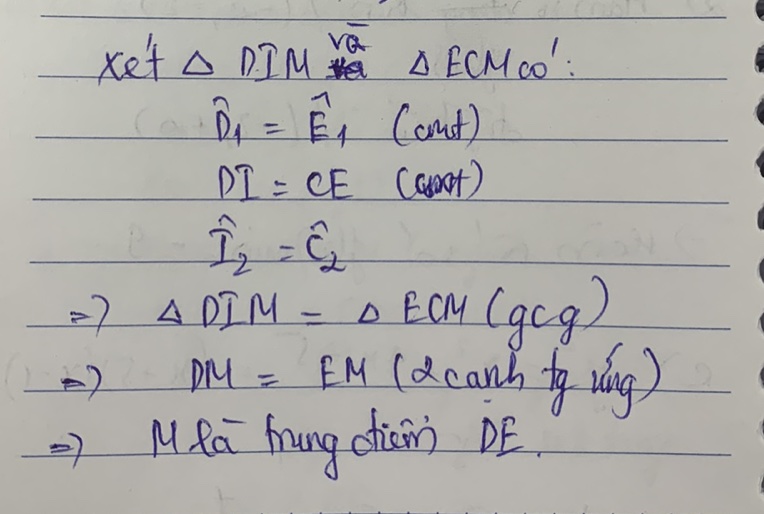 xét Δ DIM và Δ ECM có:
D̂₁ = Ê₁ (cmt)
DI = CE (cmt)
Î₂ = Ĉ₂
=> Δ DIM = Δ ECM (gcg)
=> DM = EM (2 cạnh tg ứng)
=> M là trung điểm DE.